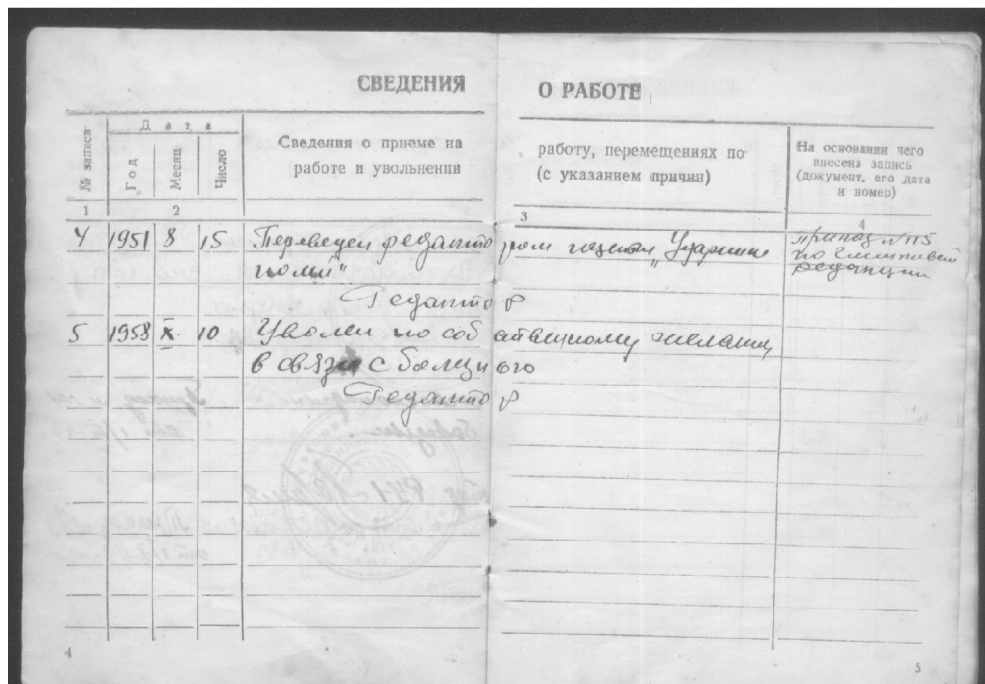 СВЕДЕНИЯ О РАБОТЕ
№ записи
Дата
Год
Месяц
Число
Сведения о приеме на работу, перемещениях по
работе и увольнении (с указанием причин)
На основании чего
внесена запись
(документ, его дата
и номер)
1 2 3 4
4 1951 8 15 Переведен редактором газеты „Ударник
поля"
Приказ №115
по
редакции
Редактор
5 1958 X 10 Уволен по собственному желанию
в связи с болезнью
Редактор
4
5